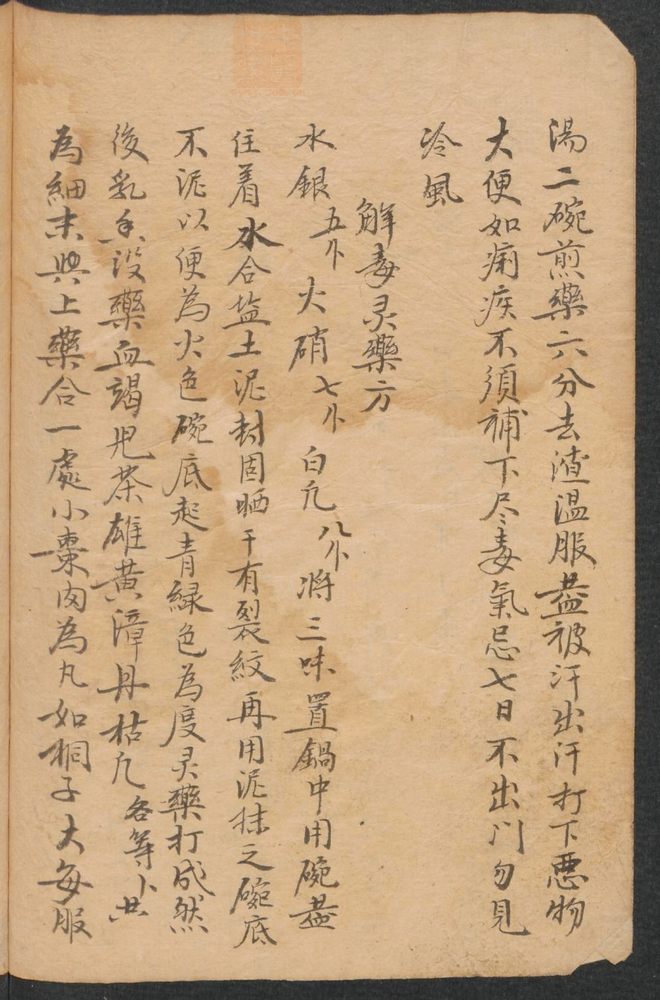 湯二碗煎藥六分去渣温服盖被汗出汗打下悪物
大便如痢疾不須補下尽毒氣忌七日不出门勿見
冷風
解毒灵藥方
水銀五卜火硝七卜白凢八卜将三味置鍋中用碗盖
住着水合盐土泥封固晒干有裂紋再用泥抹之碗底
不泥以便為火色碗底起青緑色為度灵藥打成然
後乳香没藥血竭児茶雄黄漳丹枯凢各等卜共
為細末與上藥合一處小棗肉為丸如桐子大每服